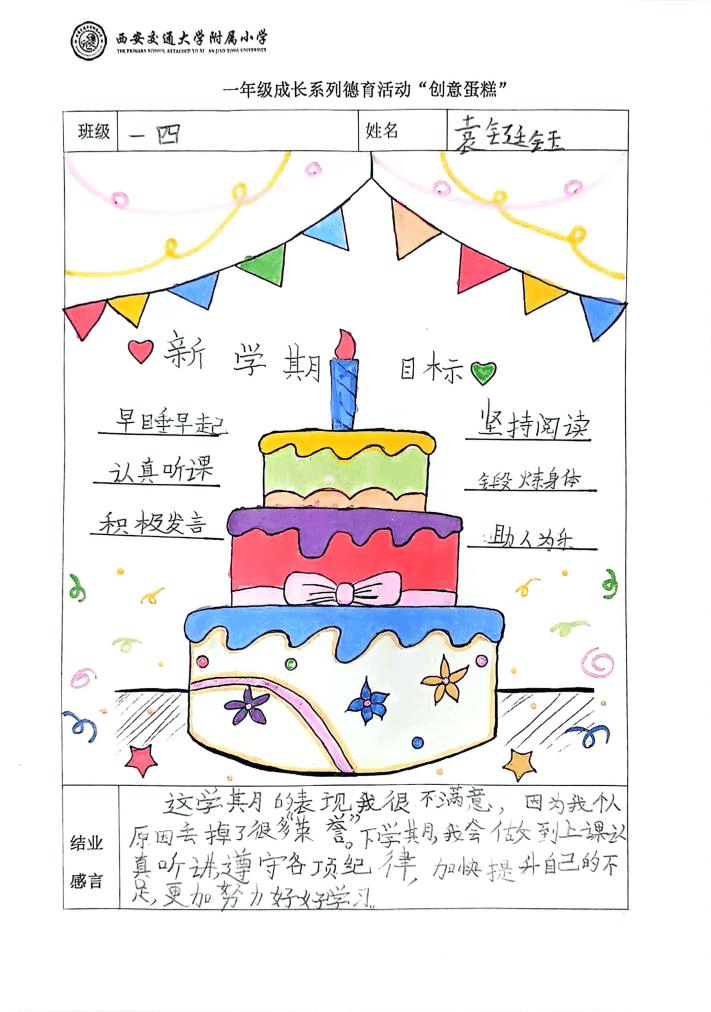 西安交通大学附属小学
THE PRIMARY SCHOOL ATTACHED TO XI'AN JIAO TONG UNIVERSITY
一年级成长系列德育活动“创意蛋糕”
班级 一四 姓名 袁
新学期目标
早睡早起
认真听课
积极发言
坚持阅读
锻炼身体
助人为乐
结业感言
这学期的表现我很不满意,因为我个人
原因丢掉了很多“荣誉”。下学期,我会做到上课认
真听讲,遵守各项纪律,加快提升自己的不
足,更加努力好好学习。